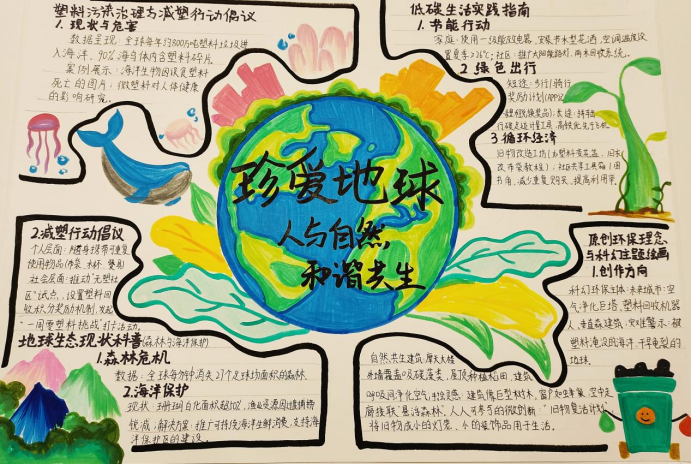 塑料污染治理与减塑行动倡议
1. 现状与危害
数据呈现:全球每年约800万吨塑料垃圾进
入海洋,90%海鸟体内含塑料碎片
案例展示:海洋生物因误食塑料
死亡的图片;微塑料对人体健康
的影响研究。
2.减塑行动倡议
个人层面:随身携带可重复
使用物品(布袋、水杯、餐具)
社会层面:推动"无塑社
区"试点,设置塑料回
收积分奖励机制,发起
"一周零塑料挑战"打卡活动。
地球生态现状科普(森林与海洋保护)
1.森林危机
数据:全球每分钟消失27个足球场面积的森林
2.海洋保护
现状:珊瑚白化面积超
锐减;解决方案:推广可持续海洋生鲜消费,支持海
洋保护区的建设。
珍爱地球
人与自然
和谐共生
低碳生活实践指南
1. 节能行动
家庭:使用一级能效电器,安装节水型花洒,空调温度设
置夏季≥26℃;社区:推广太阳能路灯,雨水回收系统。
2 绿色出行
短途:步行/骑行
奖励计划(APP记
行碳足迹计算工具,高铁优先于飞机
3 循环经济
旧物改造工坊(如塑料瓶花盆,旧衣
改布袋教程);社区共享工具箱/图
书角,减少重复购买,提高利用率
原创环保理念
与科幻主题绘画
1.创作方向
科幻环保主体:未来城市:空
气净化巨塔,塑料回收机器
人,垂直森林建筑,灾难警示:被
塑料淹没的海洋,干旱龟裂的
地球.
自然共生建筑,摩天大楼
外墙覆盖吸碳藻类,屋顶种植稻田,建筑
呼吸间净化空气,科幻灵感:建筑像巨型树木,窗户如蜂巢,空中走
廊缠联"悬浮森林",人人可参与的微创新:"旧物复活计划"
将旧物或小的灯笼、小的装饰品用于生活。